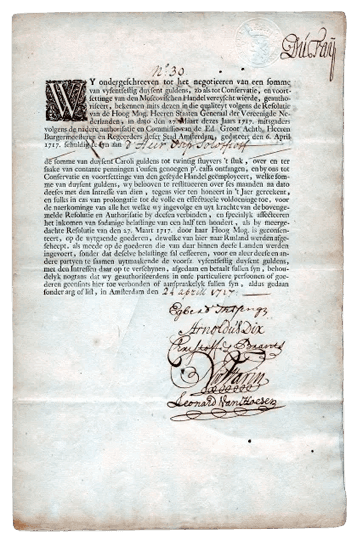 N.o 39
WY ondergeschreeven tot het negotieeren van een somme
van vyfentseftig duysent guldens, zo als tot Conservatie, en voort-
settinge van den Moscovischen Handel vereyscht wierde, geautho-
riseert, bekennen mits dezen in die qualiteyt volgens de Resolutie
van de Hoog Mog. Heeren Staaten Generaal der Vereenigde Ne-
derlanden, in dato den 27. Maart dezes Jaars 1717. mitsgaders
volgens de nadere authorisatie en Commissie van de Ed. Groot Achtb. Heeren
Burgermeesteren en Regeerders deser Stad Amsterdam, gedateert den 6. April
1717. schuldig te syn aan d'Heer
de somme van duysent Caroli guldens tot twintig stuyvers 't stuk, over en ter
saake van contante penningen t'onsen genoegen p. cassa ontfangen, en by ons tot
Conservatie en voortsettinge van den geseyde Handel geemployeert, welke som-
me van duysent guldens, wy belooven te restitueeren over ses maanden na dato
deses met den Intressе van dien, tegens vier ten honderd in 't Jaar gereekent,
en sulks in cas van prolongatie tot de volle en effectueele voldoeninge toe, voor
de naerkominge van alle het welke wy ingevolge en uyt krachte van de bovenge-
melde Resolutie en Authorisatie by deesen verbinden, en speciaalyk affecteeren
het inkomen van sodanige belastinge van een half ten hondert, als by meerge-
dachte Resolutie van den 27. Maart 1717. door haar Hoog Mog. is geconsen-
teert, op de uytgaande goederen, dewelke van hier naar Rusland werden afge-
scheept, als meede op de goederen die van daar binnen deese Landen werden
ingevoert, sonder dat deselve belastinge sal cesseeren, voor en aleer deese en an-
dere partyen te saamen uytmaakende de voorsz vyfentseftig duysent guldens,
met den Intressen daar op te verschynen, afgedaan en betaalt sullen syn, behou-
delyk nogtans dat wy geauthoriseerdens in onse particuliere persoonen of goede-
ren geensints hier toe verbonden of aanspraakelyk sullen syn, aldus gedaan
sonder arg of list, in Amsterdam den 24 april 1717.
Arnold Dix
Leonard Van Hoesen